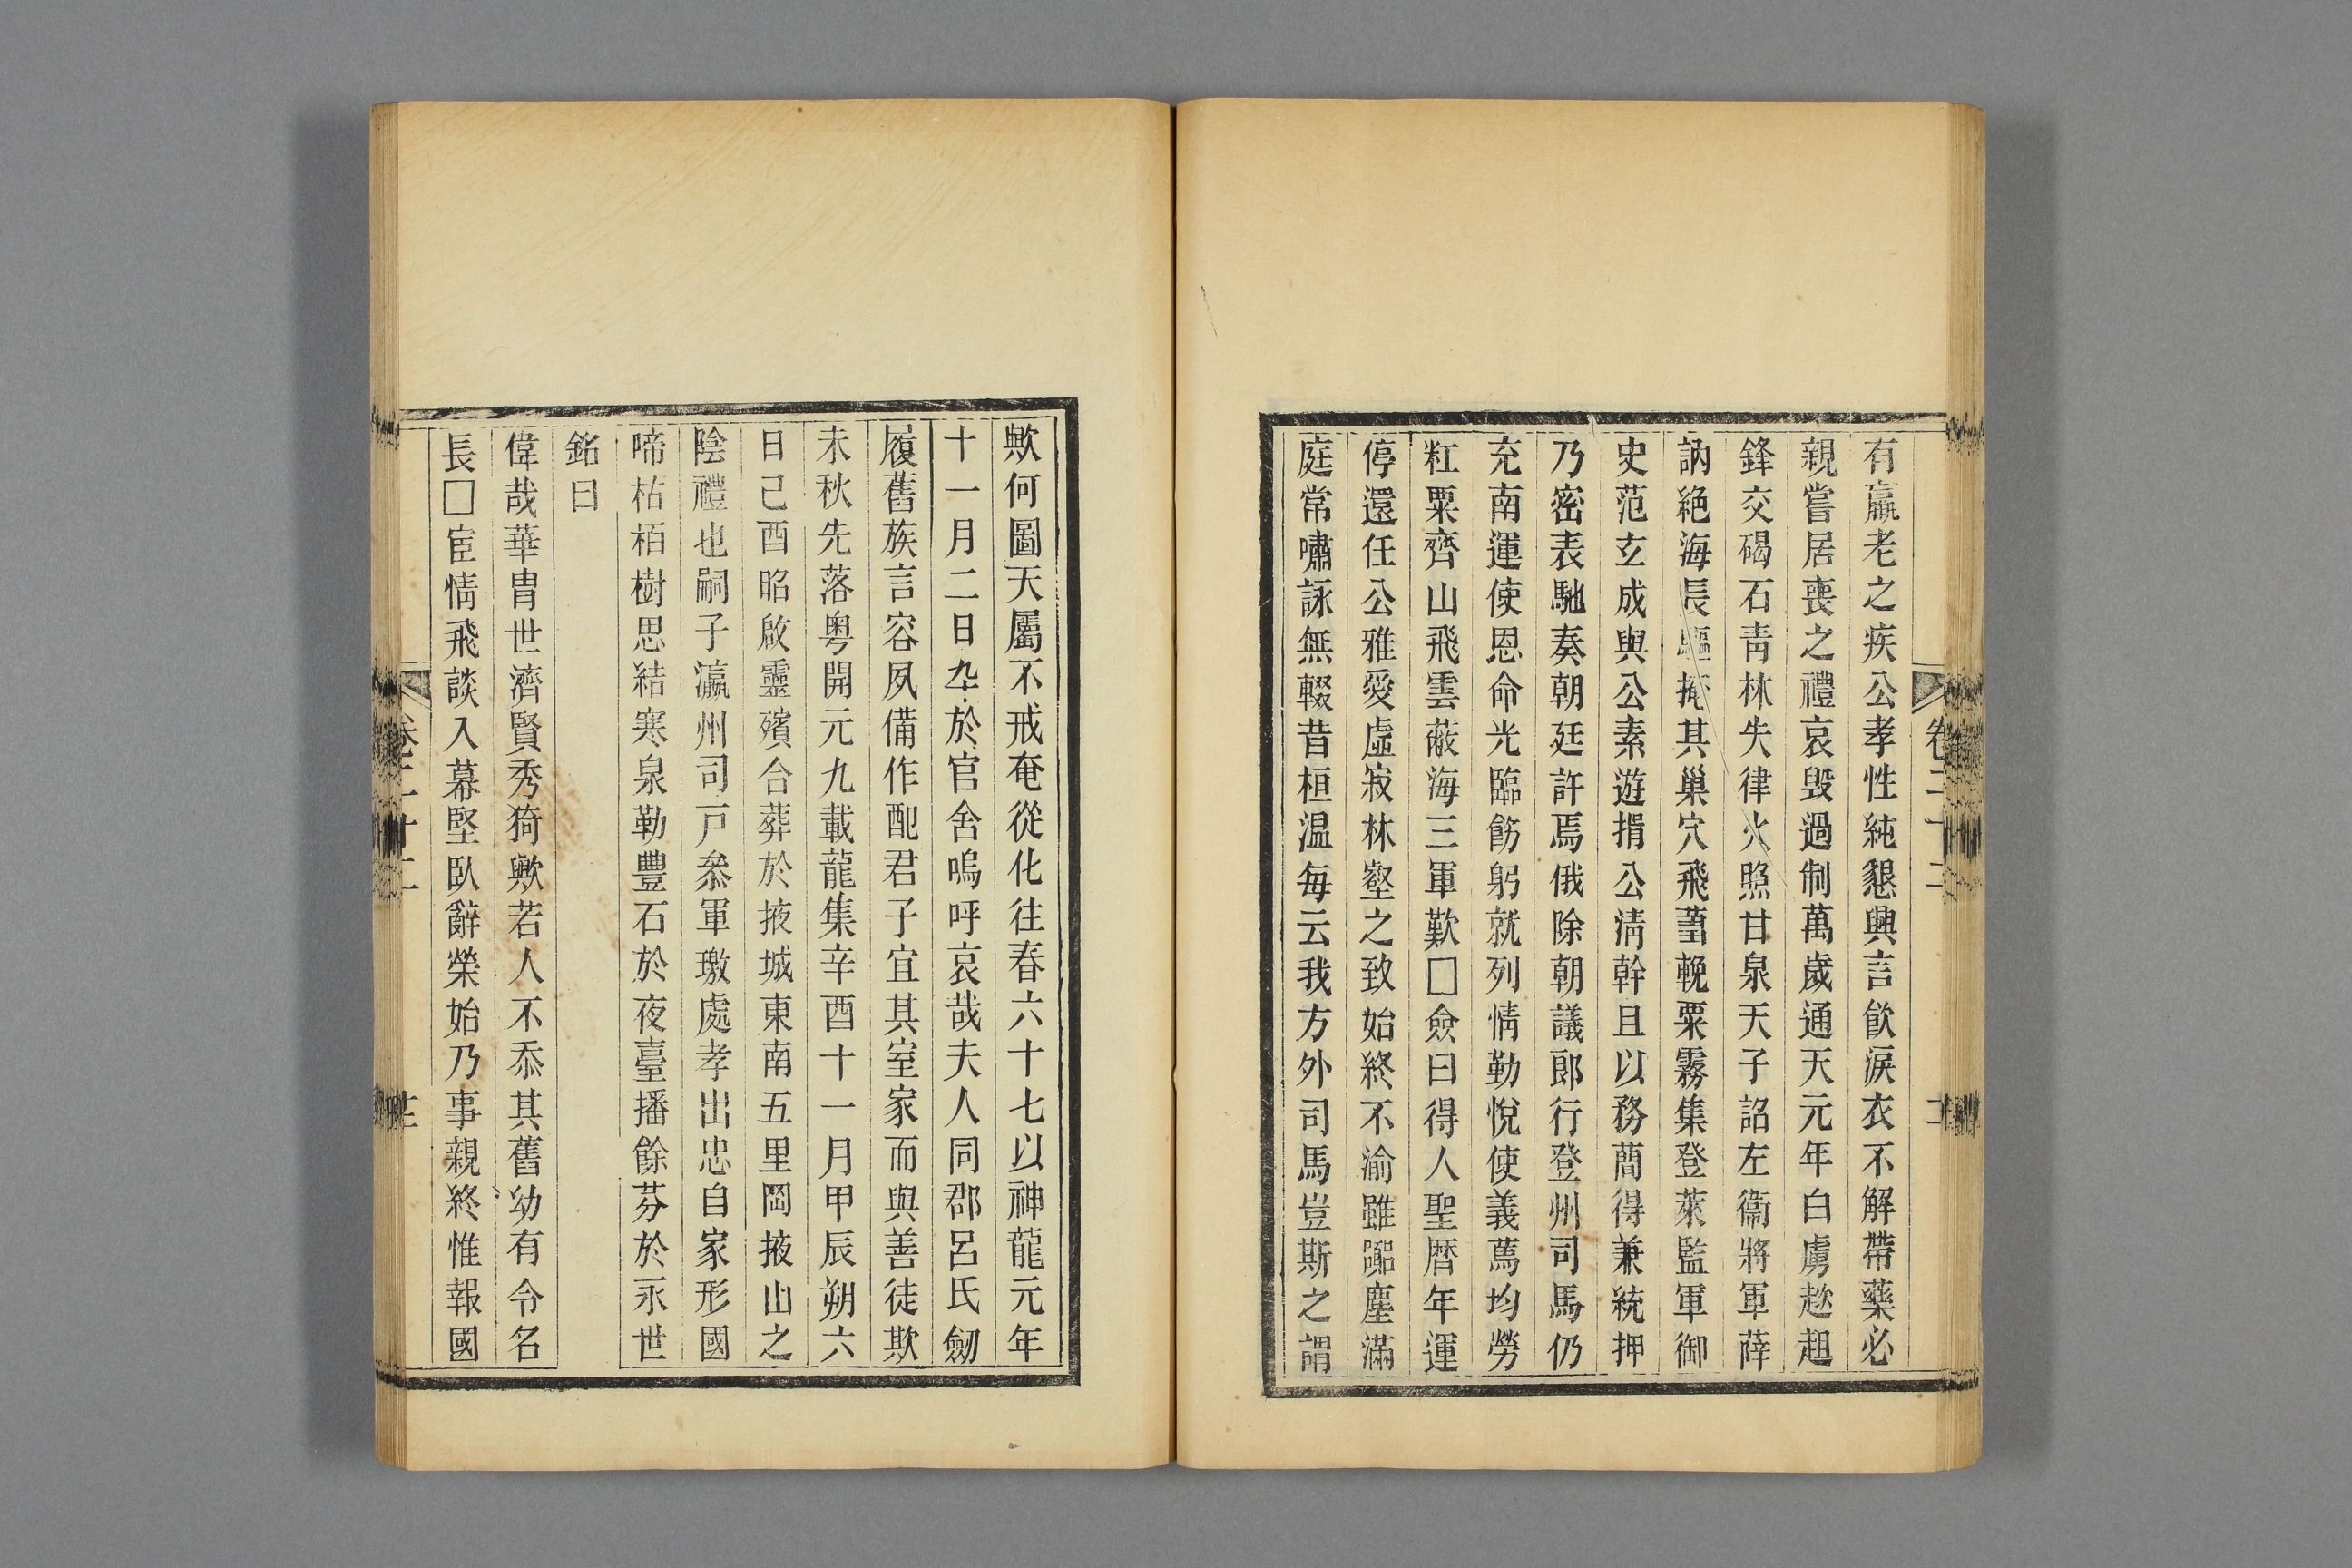 有羸老之疾公孝性純懇興言飮淚衣不解帶藥必
親嘗居喪之禮哀毀過制萬歲通天元年白虜趑趄
鋒交碣石靑林失律火照甘泉天子詔左衞將軍薛
訥絕海長驅掩其巢穴飛蒭輓粟霧集登萊監軍御
史范玄成與公素遊揖公淸幹且以務簡得兼統押
乃密表馳奏朝廷許焉俄除朝議郞行登州司馬仍
充南運使恩命光臨飭躬就列情勤悅使義蔿均勞
粓粟齊山飛雲蔽海三軍歎□僉曰得人聖曆年運
停還任公雅愛虛寂林壑之致始終不渝雖囂塵滿
庭常嘯詠無輟昔桓温每云我方外司馬豈斯之謂
歟何圖天屬不戒奄從化往春六十七以神龍元年
十一月二日卒於官舍嗚呼哀哉夫人同郡呂氏劒
履舊族言容夙備作配君子宜其室家而與善徒欺
未秋先落粤開元九載龍集辛酉十一月甲辰朔六
日己酉昭啟靈殯合葬於掖城東南五里岡掖山之
陰禮也嗣子瀛州司戸叅軍璥處孝出忠自家形國
啼枯栢樹思結寒泉勒豐石於夜臺播餘芬於永世
銘曰
偉哉華胄世濟賢秀猗歟若人不忝其舊幼有令名
長□宦情飛談入幕堅臥辭榮始乃事親終惟報國
卷二十二